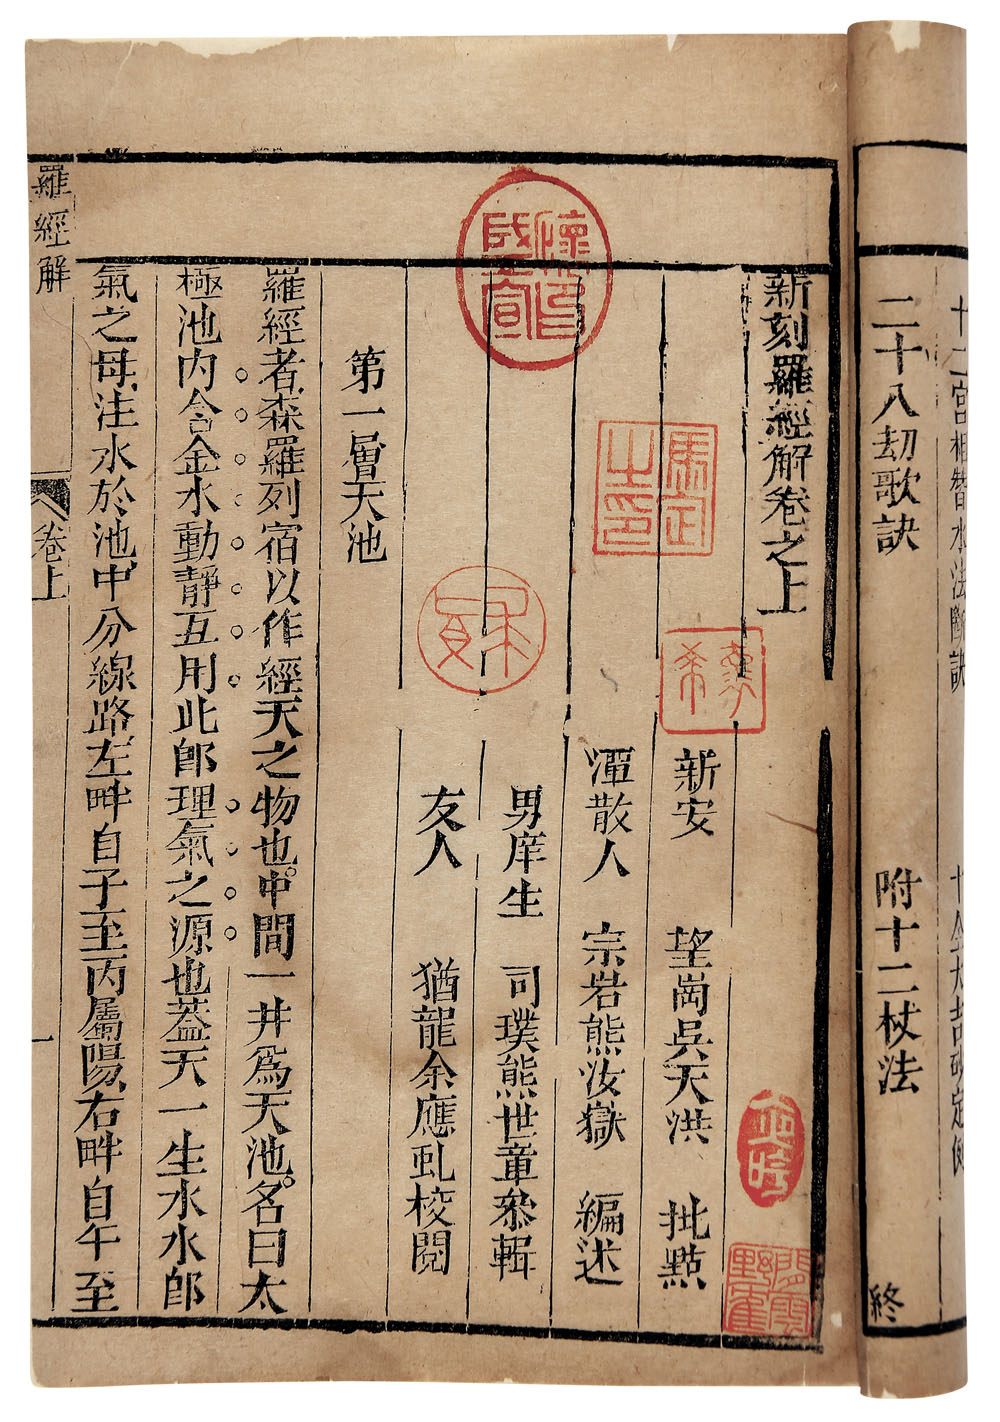 十二宮相替水法斷訣
二十八刧歌訣　附十二杖法　終
新刻羅經解卷之上
新安　望崗吳天洪　批點
湮散人　宗岩熊汝嶽　編述
男庠生　司璞熊世章叅輯
友人　猶龍余應虬校閱
第一層天池
羅經者森羅列宿以作經天之物也中間一井爲天池名曰太
極池内含金水動靜互用此卽理氣之源也蓋天一生水水卽
氣之母注水於池中分線路左畔自子至丙屬陽右畔自午至
羅經解　卷上　一